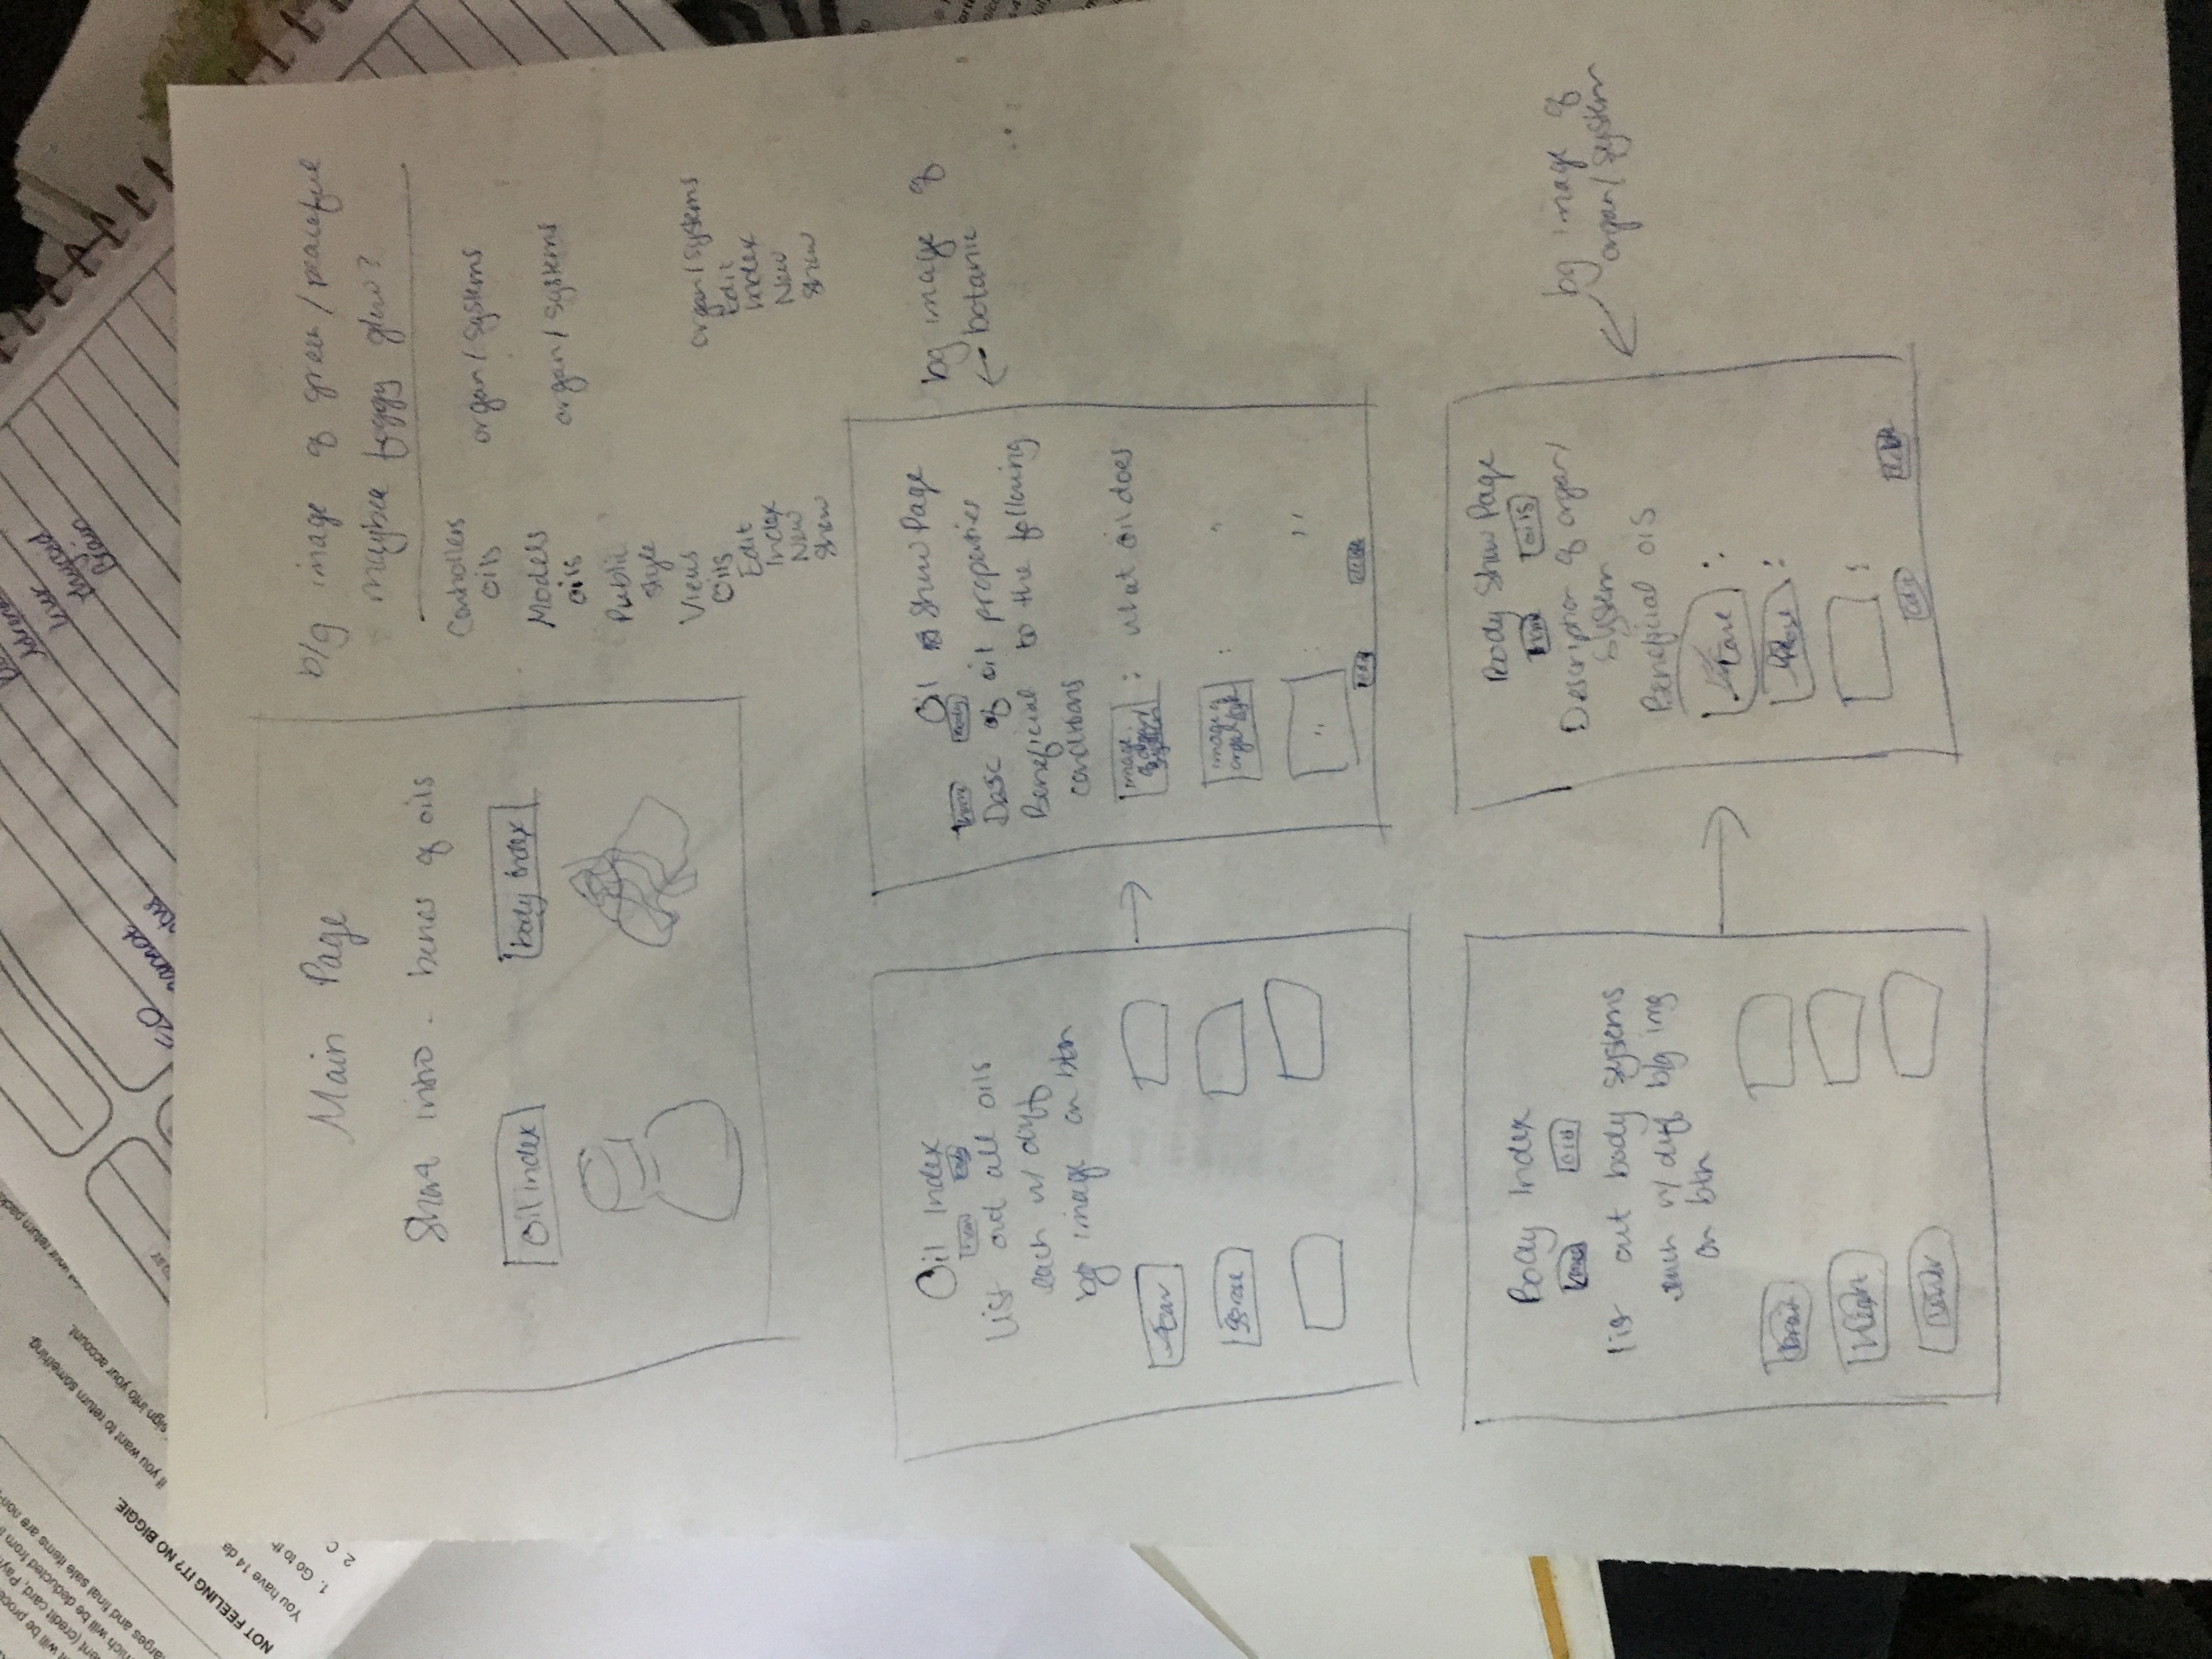 NOT FEELING IT? NO BIGGIE.
You have 14 da
1. Go to th
2. C
if you want to return something.
sign into your account.
liver
thyroid
Brain
Main Page
Short intro - benes of oils
Oil index
body index
b/g image of green / peaceful
maybea foggy glow?
Controllers
oils
organ / systems
Models
oils
organ / systems
Public
style
Views
Oils
Edit
Index
New
Show
organ / systems
Edit
Index
New
Show
Oil Index
home
body
List out all oils
each w/ diff
bg image on btn
rose
Oil Show Page
home
body
Desc of oil properties
Beneficial to the following
conditions
image
of organ/
system
: what oil does
image of
organ/sys
: "
" : "
edit
delete
bg image of
botanic
Body Index
home
oils
list out body systems
each w/ diff b/g img
on btn
brain
Heart
liver
Body Show Page
home
oils
Description of organ/
system
Beneficial oils
:
Rose :
:
edit
delete
bg image of
organ/ system